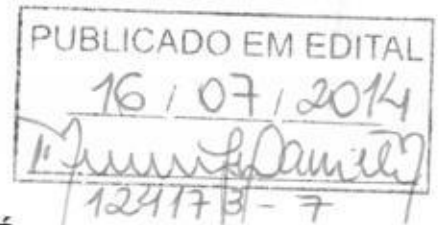 PUBLICADO EM EDITAL
16 / 07 / 2014
124173 - 7
É